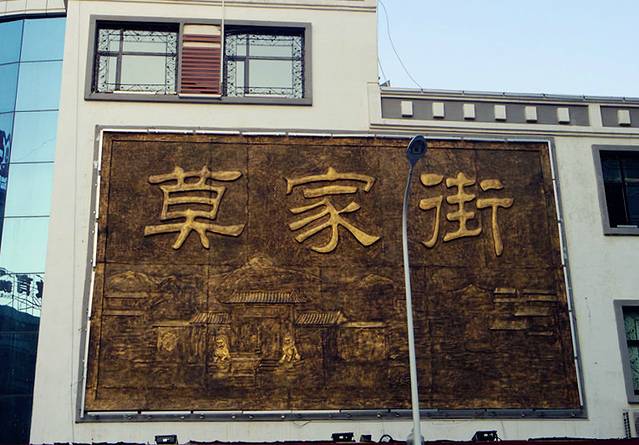 莫家街